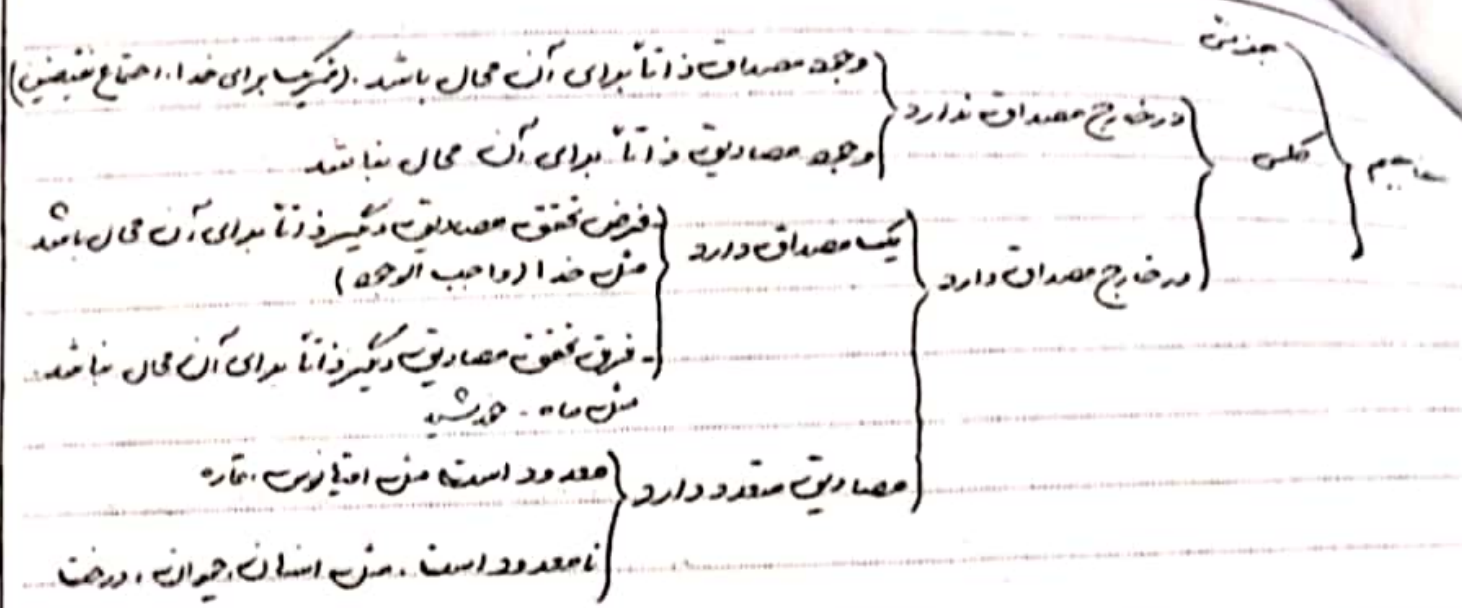 مفاهیم
جزئی
کلی
در خارج مصداق ندارد
وجود مصداق ذاتاً برای آن محال باشد. (شریک برای خدا، اجتماع نقیضین)
وجود مصادیق ذاتاً برای آن محال نباشد
در خارج مصداق دارد
یک مصداق دارد
- فرض تحقق مصادیق دیگر ذاتاً برای آن محال باشد
مثل خدا (واجب الوجود)
- فرض تحقق مصادیق دیگر ذاتاً برای آن محال نباشد.
مثل ماه - خورشید
مصادیق متعدد دارد
معدود است مثل اقیانوس، قاره
نامعدود است. مثل انسان، حیوان، درخت